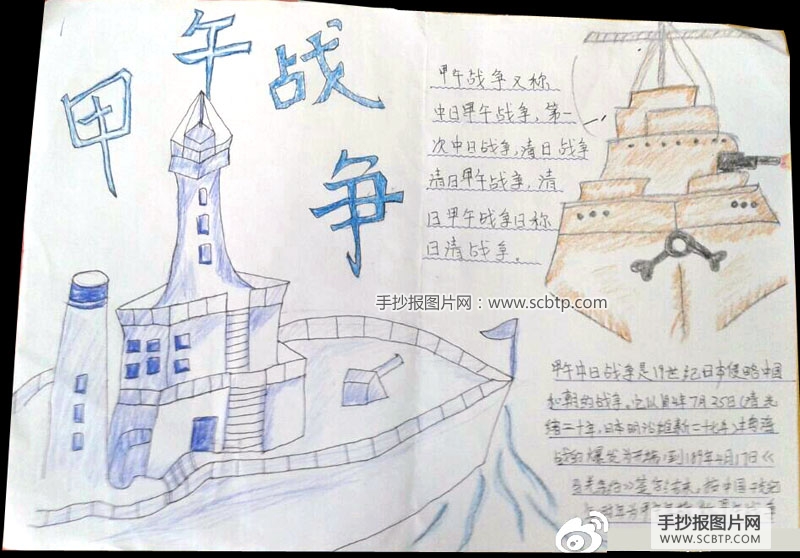 甲午战争
甲午战争又称
中日甲午战争,第二
次中日战争,清日战争
清日甲午战争,清
日甲午战争日称
日清战争。
手抄报图片网:www.scbtp.com
甲午中日战争是19世纪日本侵略中国
和朝的战争。它以
7月25日(清光
绪二十年,日本明治维新二十七年)
战的爆发为开端到
4月17日《
马关条约》签
手抄报图片网
WWW.SCBTP.COM